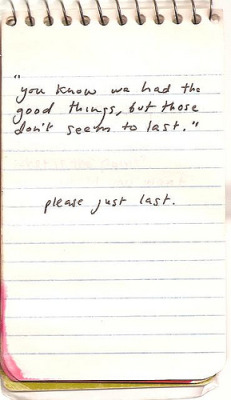 "
you know we had the
good things, but those
don't seem to last."
please just last.